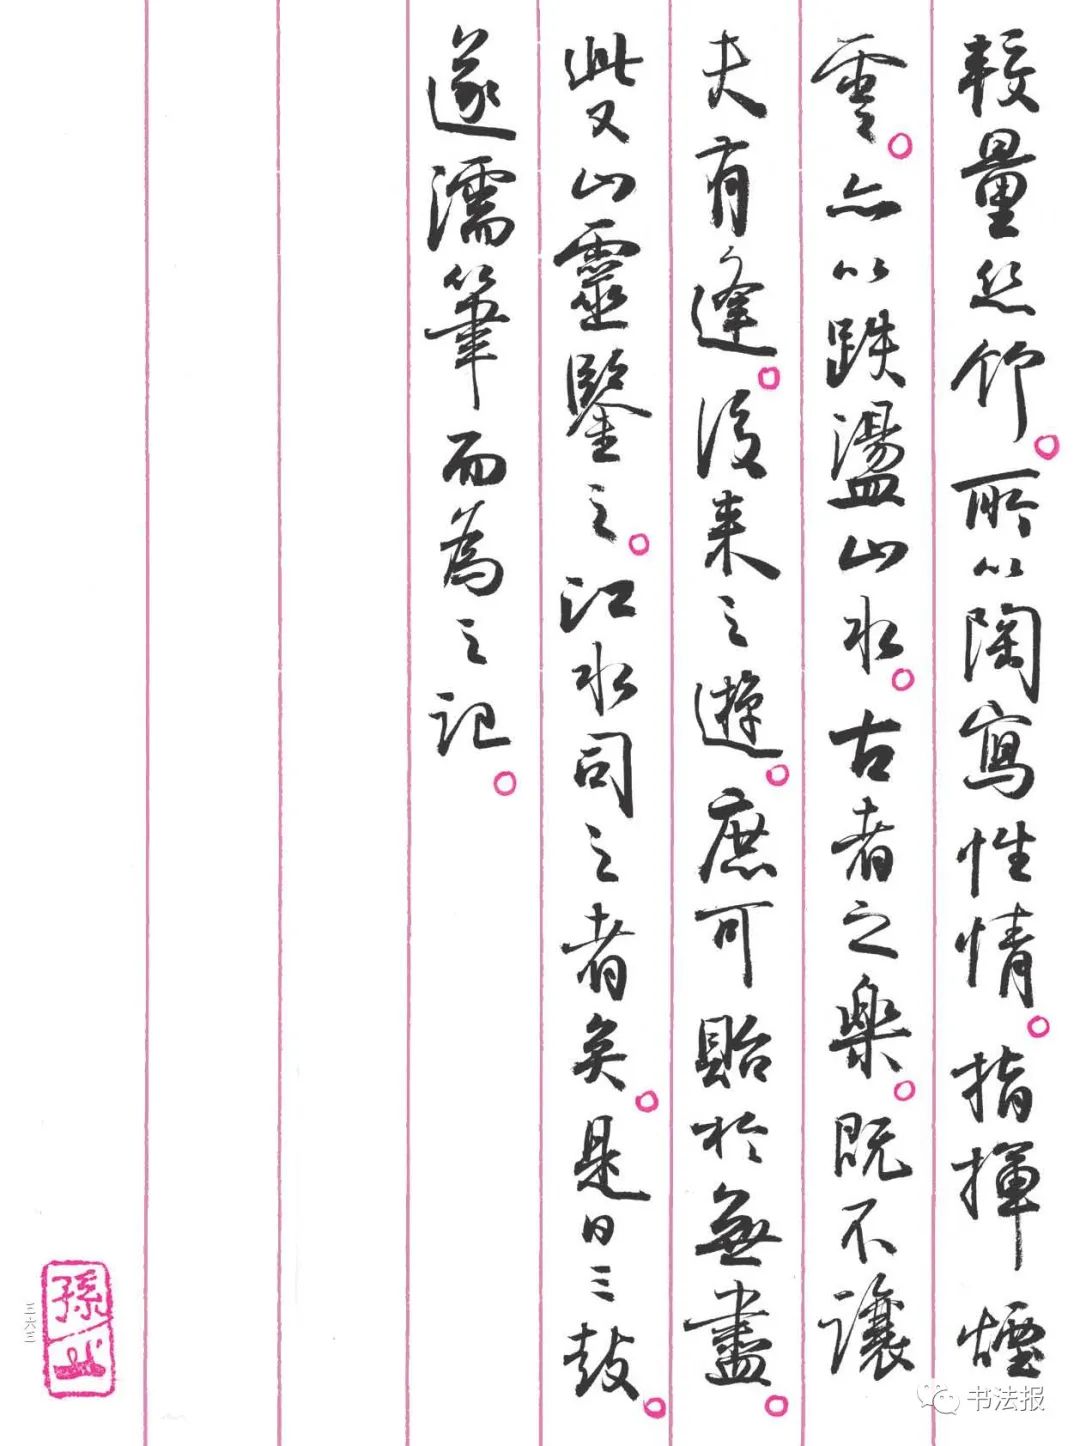 較量絲竹。所以陶寫性情。指揮煙
雲。亦以跌盪山水。古者之樂。既不讓
夫有逢。後来之遊。庶可貽於無盡。
此又山靈鑒之。江水司之者矣。是日三鼓。
遂濡筆而為之記。
三六三
書法报